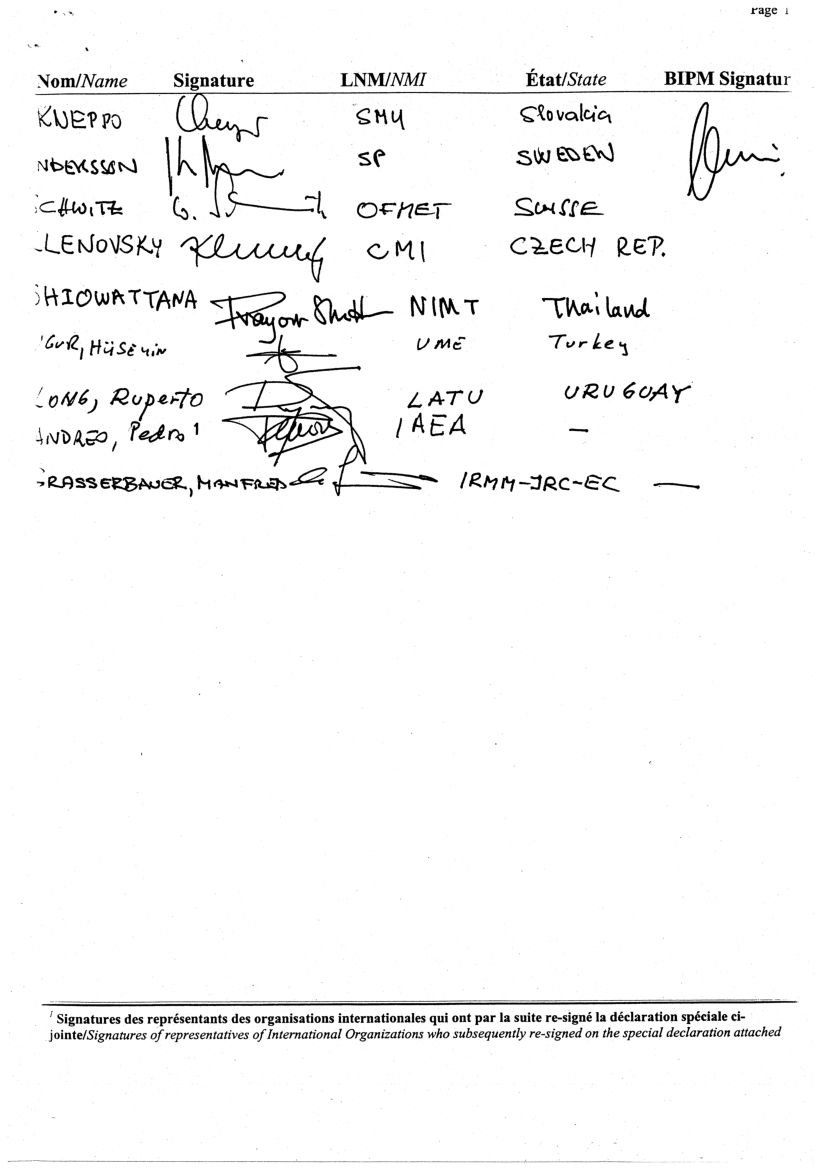 Page 1
Nom/Name Signature LNM/NMI État/State BIPM Signatur
KNEPPO SMU Slovakia
NDERSSON SP SWEDEN
CHWITZ OFMET SUISSE
LENOVSKY CMI CZECH REP.
HIOWATTANA NIMT Thailand
UGUR, HÜSEYIN UME Turkey
LONG, Ruperto LATU URUGUAY
ANDREO, Pedro 1 IAEA —
GRASSERBAUER, MANFRED IRMM-JRC-EC —
1 Signatures des représentants des organisations internationales qui ont par la suite re-signé la déclaration spéciale ci-
jointe/Signatures of representatives of International Organizations who subsequently re-signed on the special declaration attached